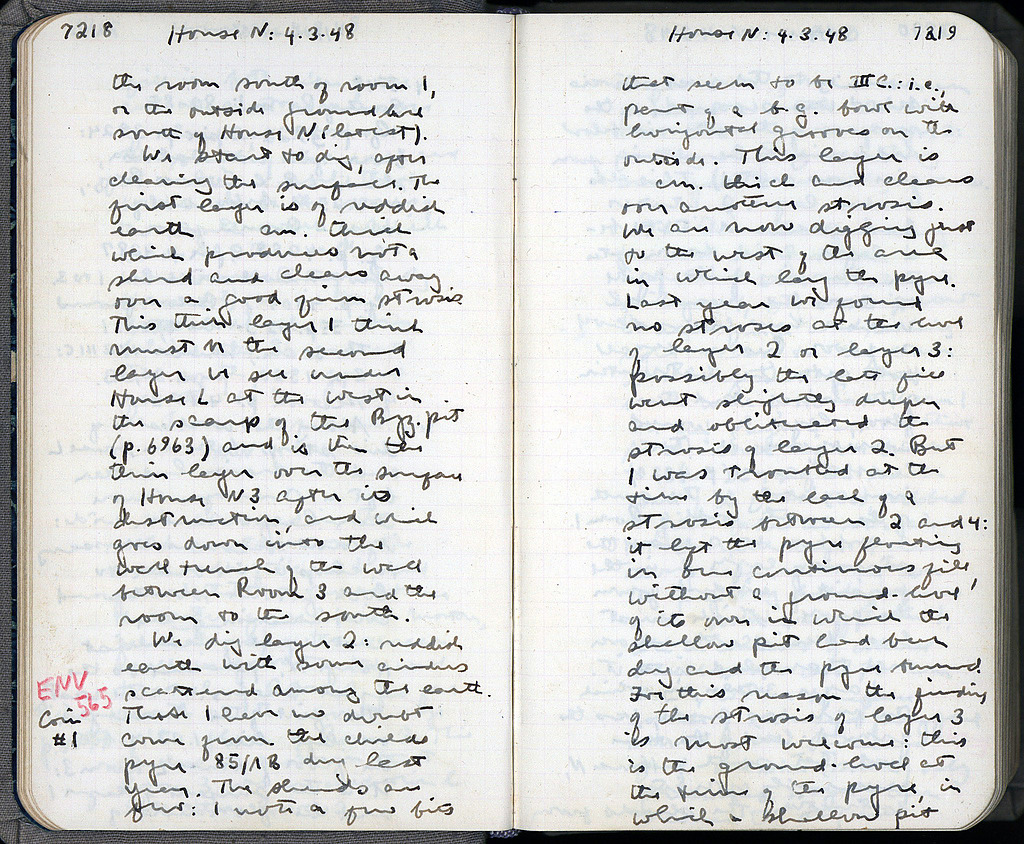 7218
House N: 4.3.48
the room south of room 1,
or the outside ground level
south of House N (latest).
We start to dig, after
clearing the surface. The
first layer is of reddish
earth cm. thick
which produces not a
sherd and cleans away
over a good firm strosis
This thin layer I think
must be the second
layer we see under
House L at the west in
the scarp of the Byz. pit
(p. 6963) and is then the
thin layer over the surface
of House N3 after its
destruction, and which
goes down into the
wall trench, the wall
between Room 3 and the
room to the south.
We dig layer 2: reddish
earth with some cinders
scattered among the earth.
ENV
565
Coin
#1
These I have no doubt
come from the child's
pyre 85/ΛB dug last
year. The sherds are
few: I note a few bits
House N: 4.3.48
7219
that seem to be III C.: i.e.,
part of a b.g. bowl with
horizontal grooves on the
outside. This layer is
cm. thick and cleans
over another strosis.
We are now digging just
to the west of the area
in which lay the pyre.
Last year we found
no strosis at the level
of layer 2 or layer 3:
possibly the late fill
went slightly deeper
and obliterated the
strosis of layer 2. But
I was troubled at the
time by the lack of a
strosis between 2 and 4:
it left the pyre floating
in one continuous fill,
without a ground-level
of its own in which the
shallow pit had been
dug and the pyre burned.
For this reason the finding
of the strosis of layer 3
is most welcome: this
is the ground-level at
the time of the pyre, in
which a shallow pit